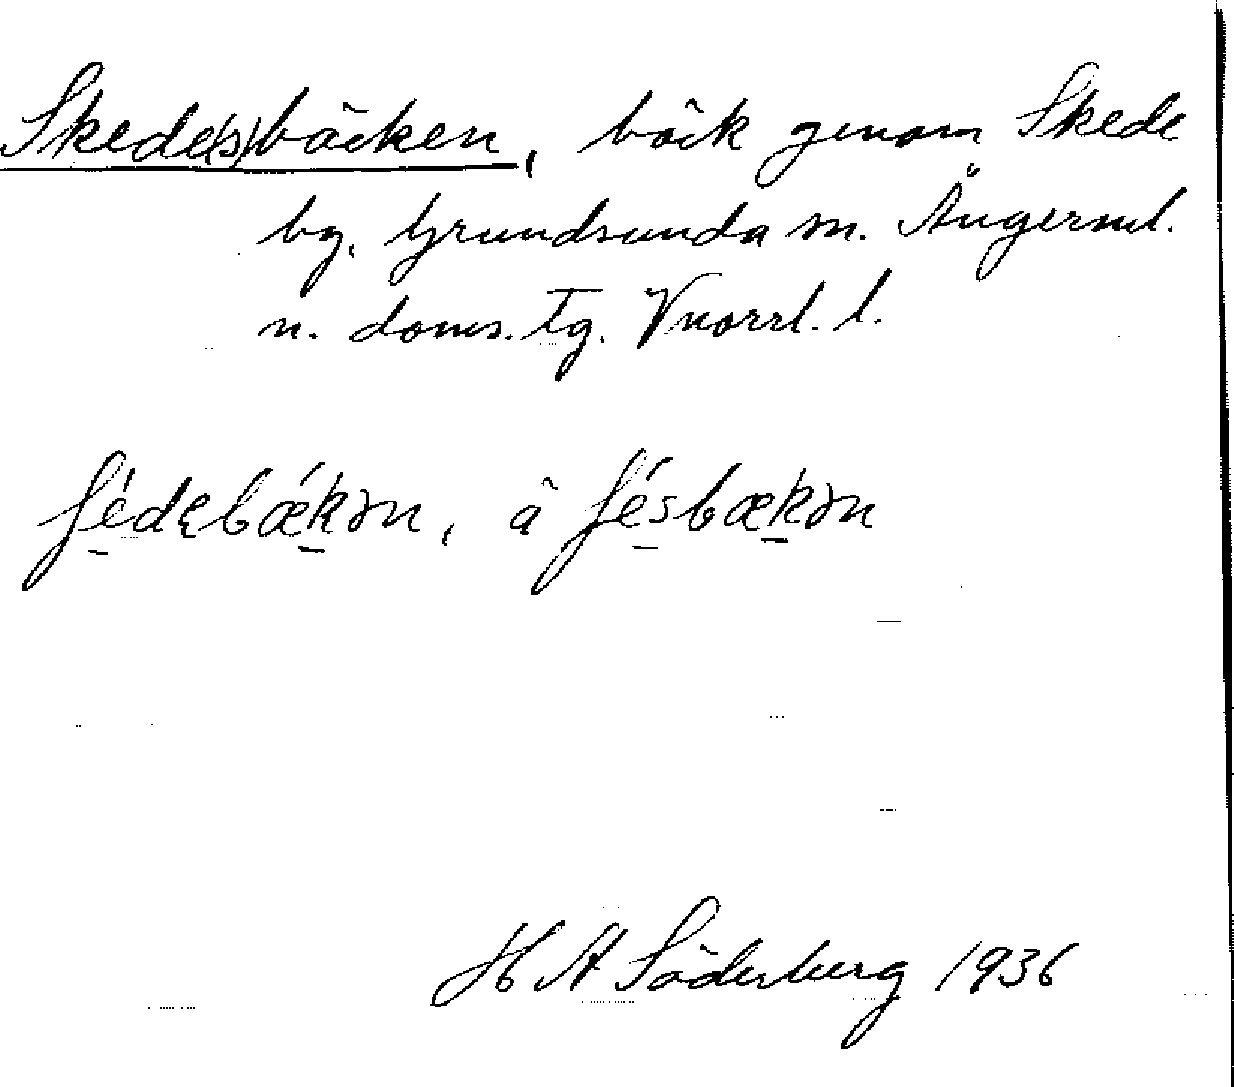 Skede(s)bäcken, bäck genom Skede
by. Grundsunda sn. Ångerml.
n. doms. tg. Vnorrl. l.
ʃédębǽkən, å ʃésbækən
H A Söderberg 1936